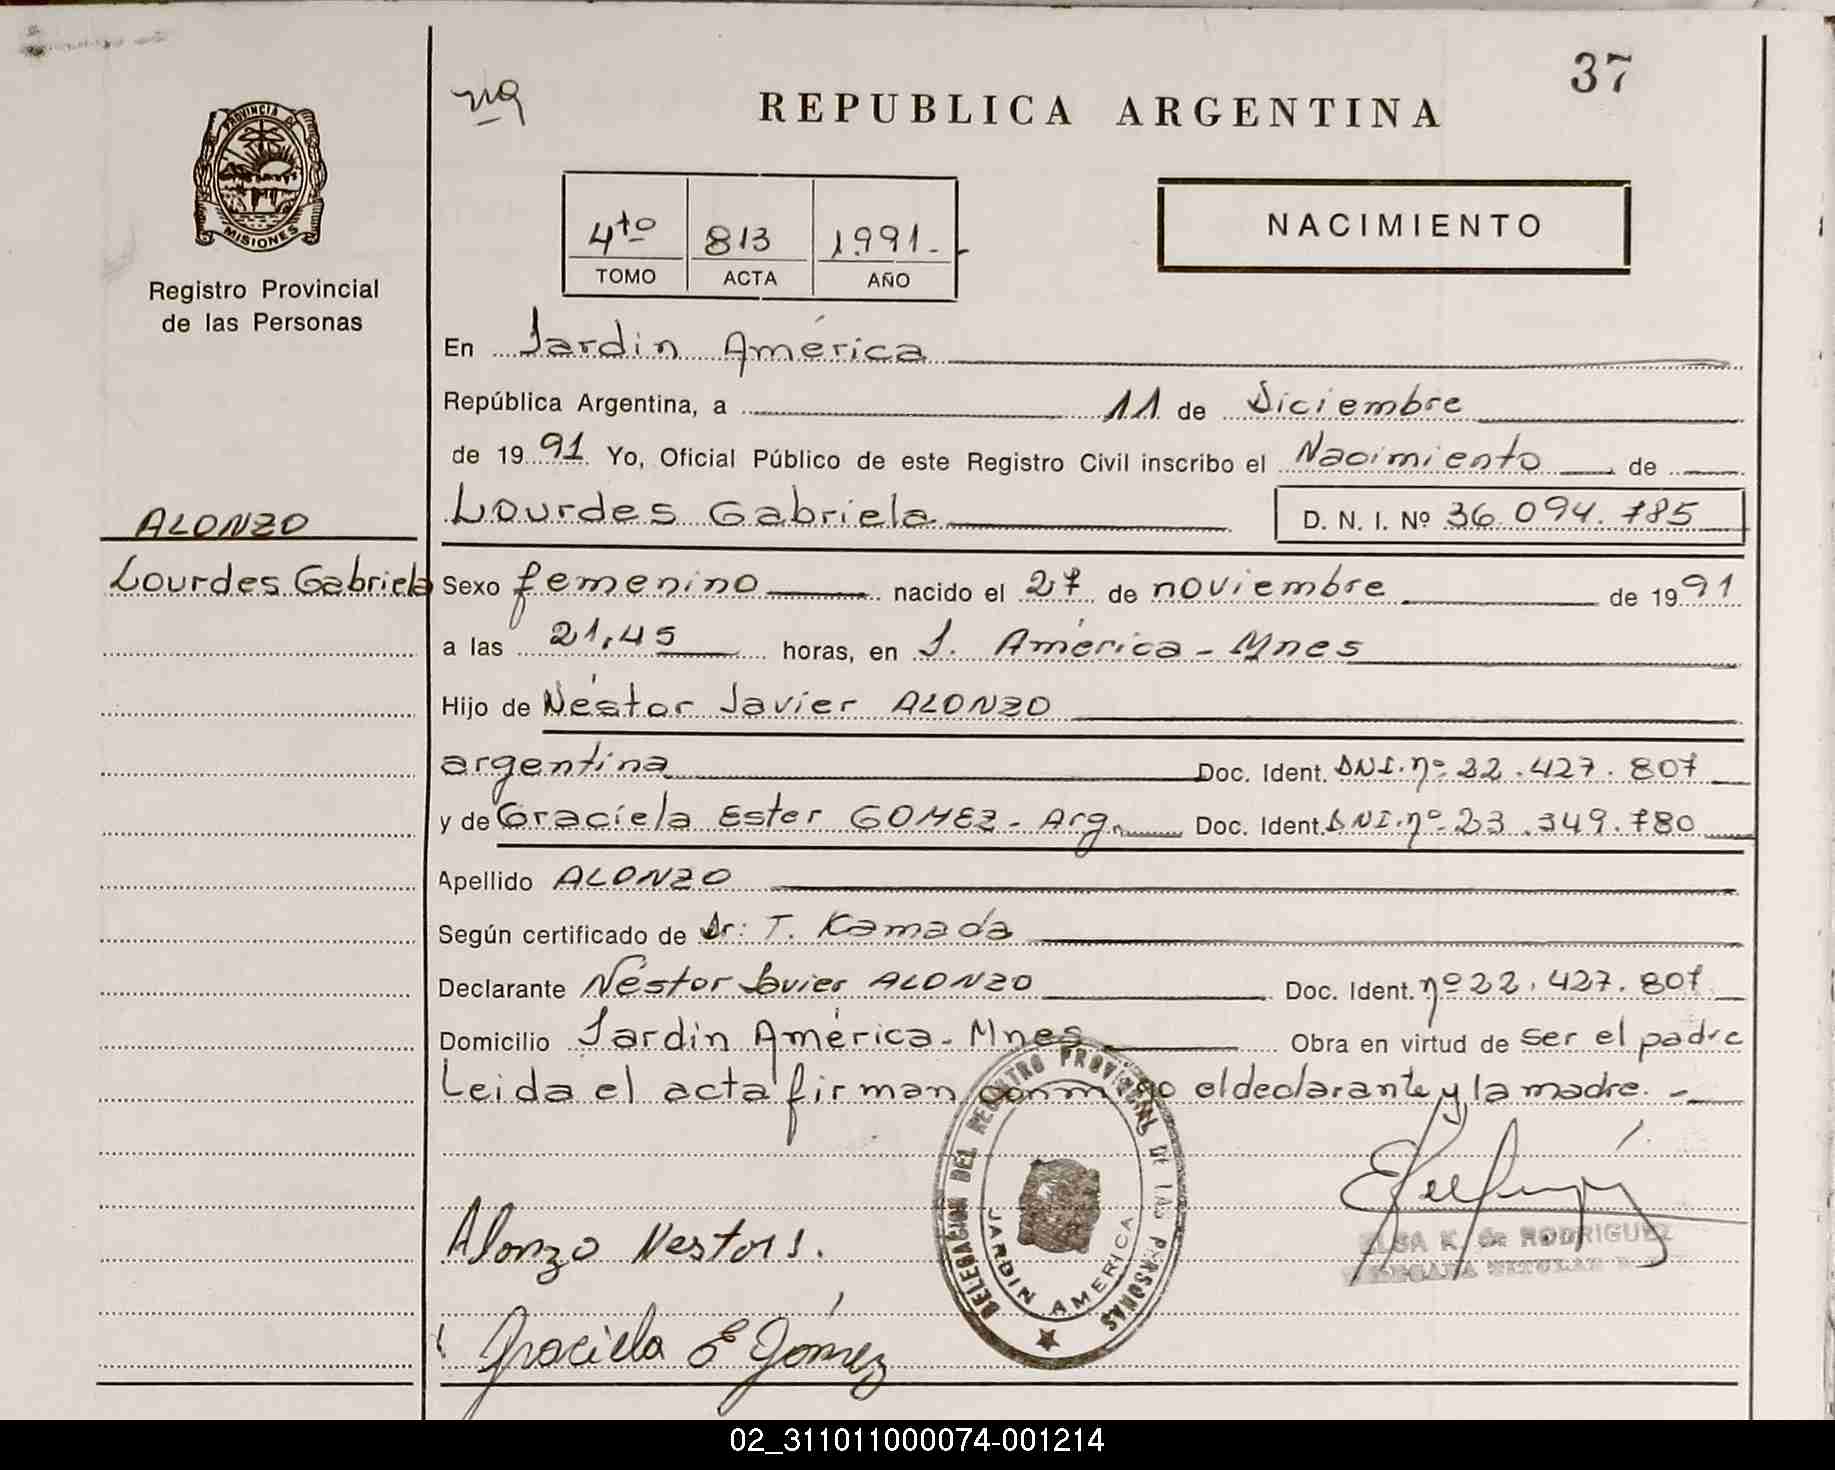 37
ng
REPUBLICA ARGENTINA
PROVINCIA DE
MISIONES
Registro Provincial
de las Personas
4to 813 1991.-
TOMO ACTA AÑO
NACIMIENTO
En Jardin América
República Argentina, a 11 de Diciembre
de 1991 Yo, Oficial Público de este Registro Civil inscribo el Nacimiento de
Lourdes Gabriela D. N. I. Nº 36.094.785
ALONZO
Lourdes Gabriela
Sexo femenino nacido el 27 de noviembre de 1991
a las 21,45 horas, en J. América - Mnes
Hijo de Néstor Javier ALONZO
argentina Doc. Ident. DNI. nº 22.427.807
y de Graciela Ester GOMEZ - Arg. Doc. Ident. DNI. nº 23.349.780
Apellido ALONZO
Según certificado de Dr: T. Kamada
Declarante Néstor Javier ALONZO Doc. Ident. nº 22.427.807
Domicilio Jardin América - Mnes Obra en virtud de ser el padre
Leida el acta firman conmigo el declarante y la madre. -
DELEGACION DEL REGISTRO PROVINCIAL DE LAS PERSONAS
JARDIN AMERICA
ELSA K. de RODRIGUEZ
Alonzo Nestor J.
Graciela E Gómez
02_311011000074-001214